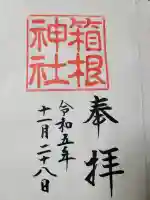 奉拝
箱根
神社
令和五年
十一月二十八日